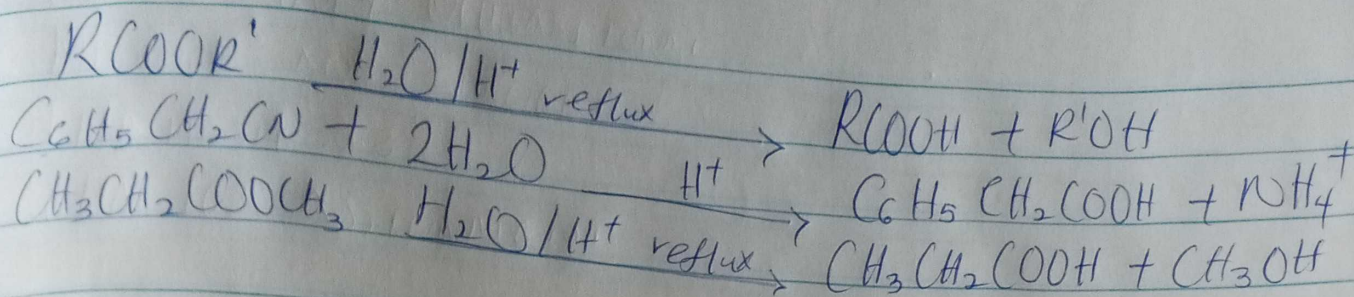 RCOOR' H₂O/H⁺ reflux → RCOOH + R'OH
C₆H₅CH₂CN + 2H₂O H⁺ → C₆H₅CH₂COOH + NH₄⁺
CH₃CH₂COOCH₃ H₂O/H⁺ reflux → CH₃CH₂COOH + CH₃OH